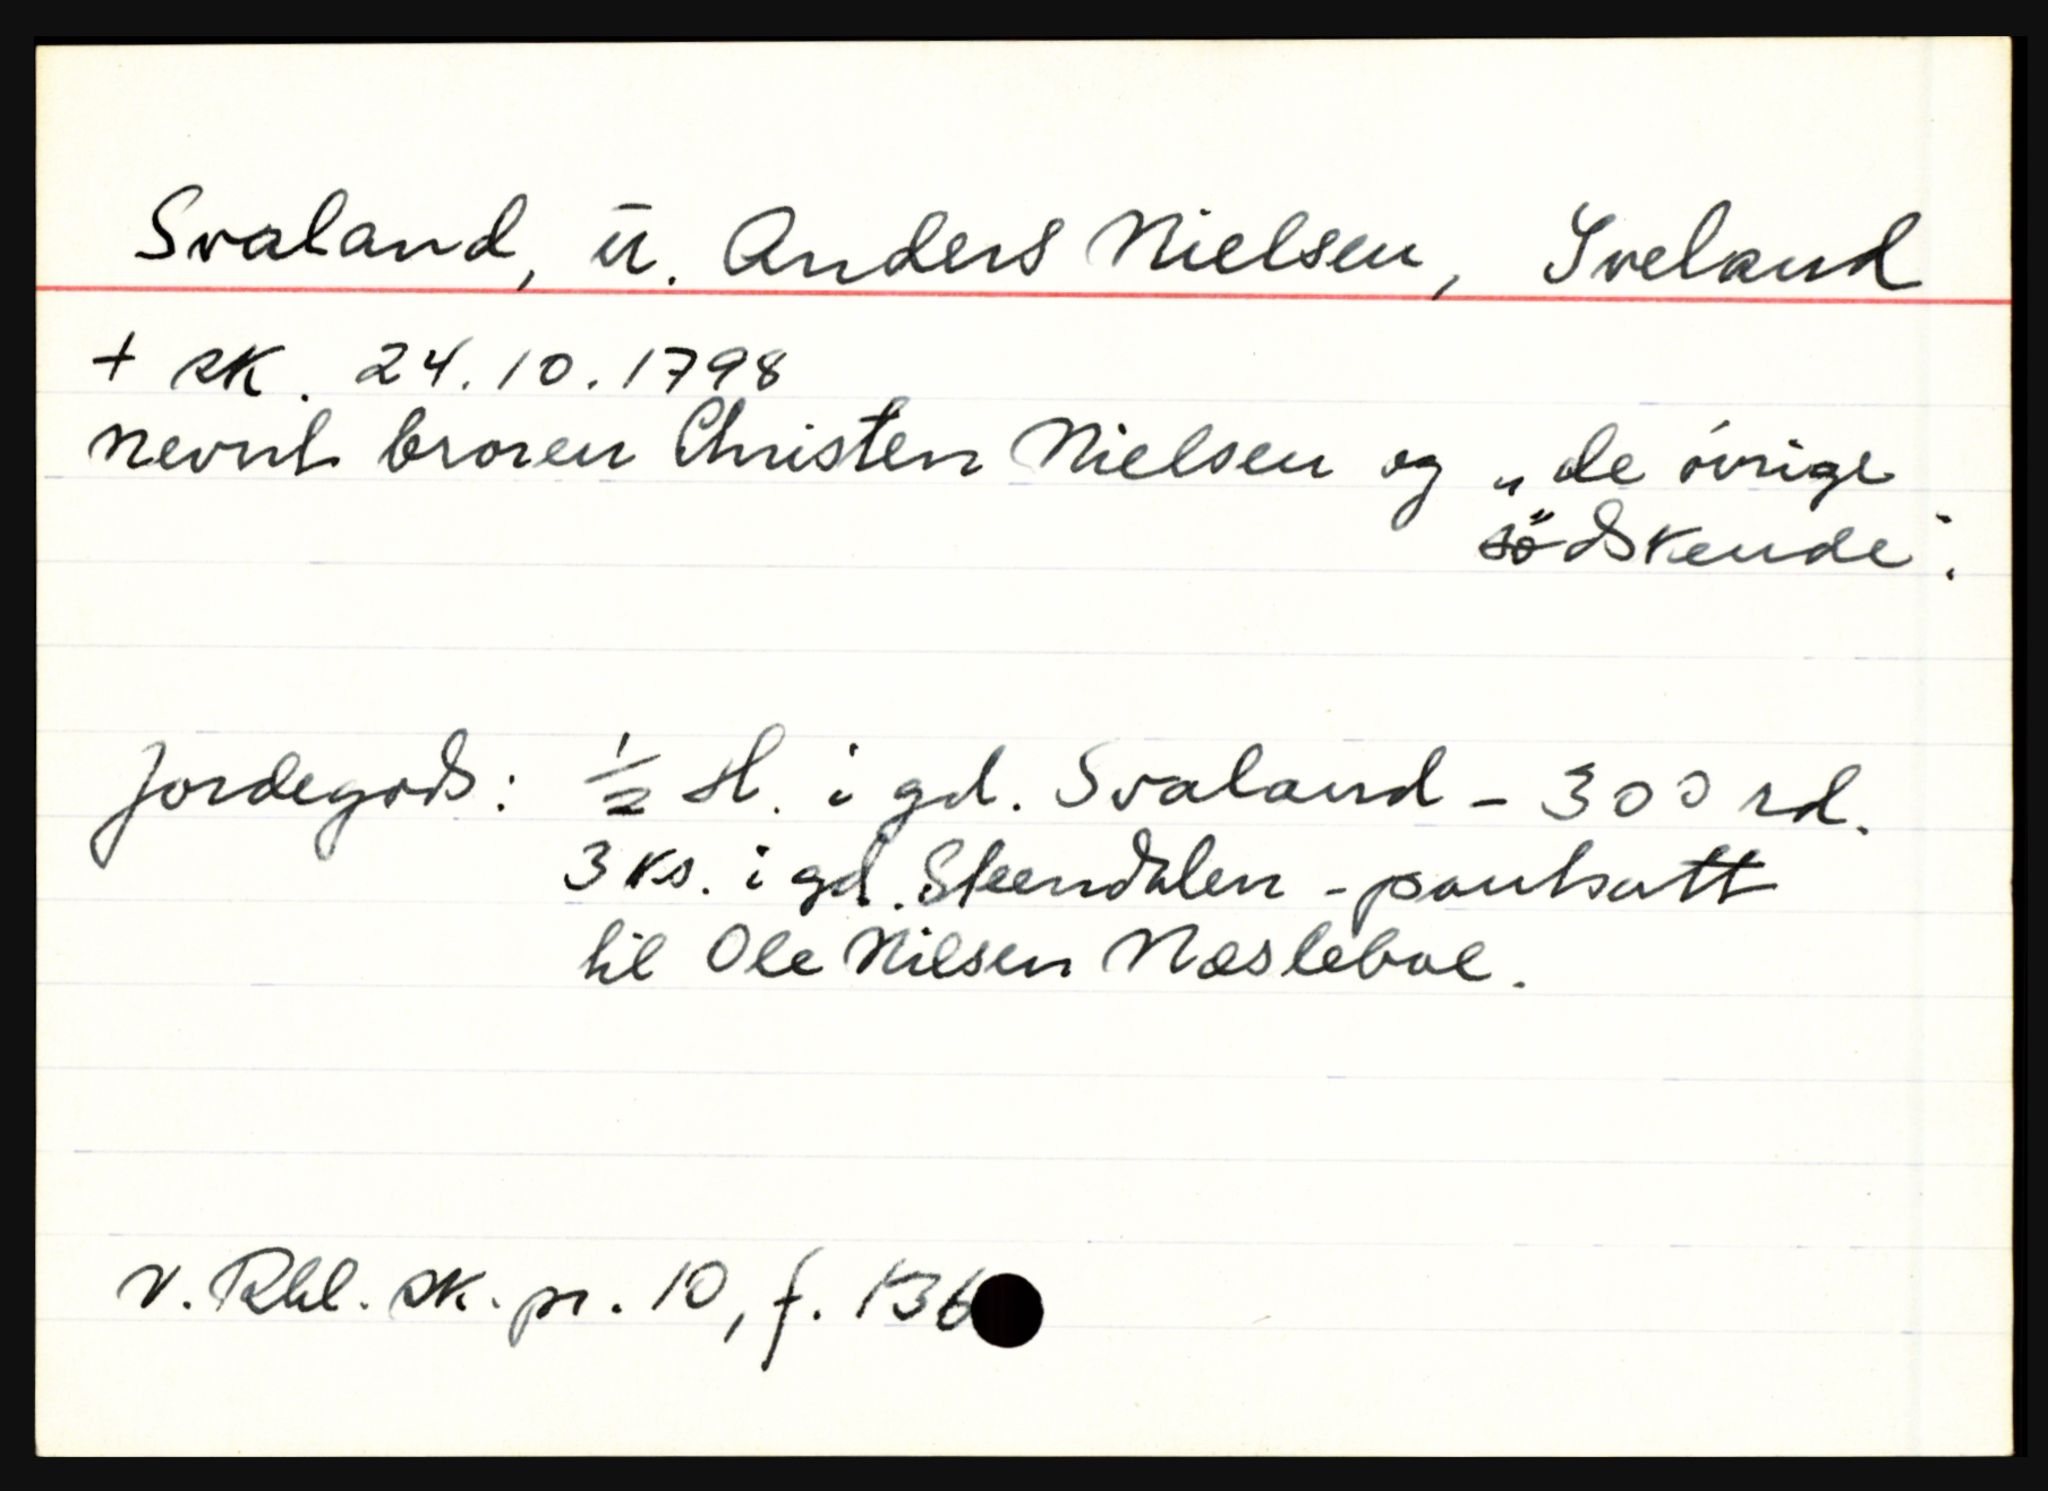 Svaland, u. Anders Nielsen, Iveland
+ sk. 24.10.1798
nevnt broren Christen Nielsen og „de övrige
södskende".
Jordegods: ½ hd. i gd. Svaland - 300 rd.
3 ks. i gd. Steendalen - pantsatt
til Ole Nilsen Næsleboe.
v. Rbl. sk. pr. 10, f. 136